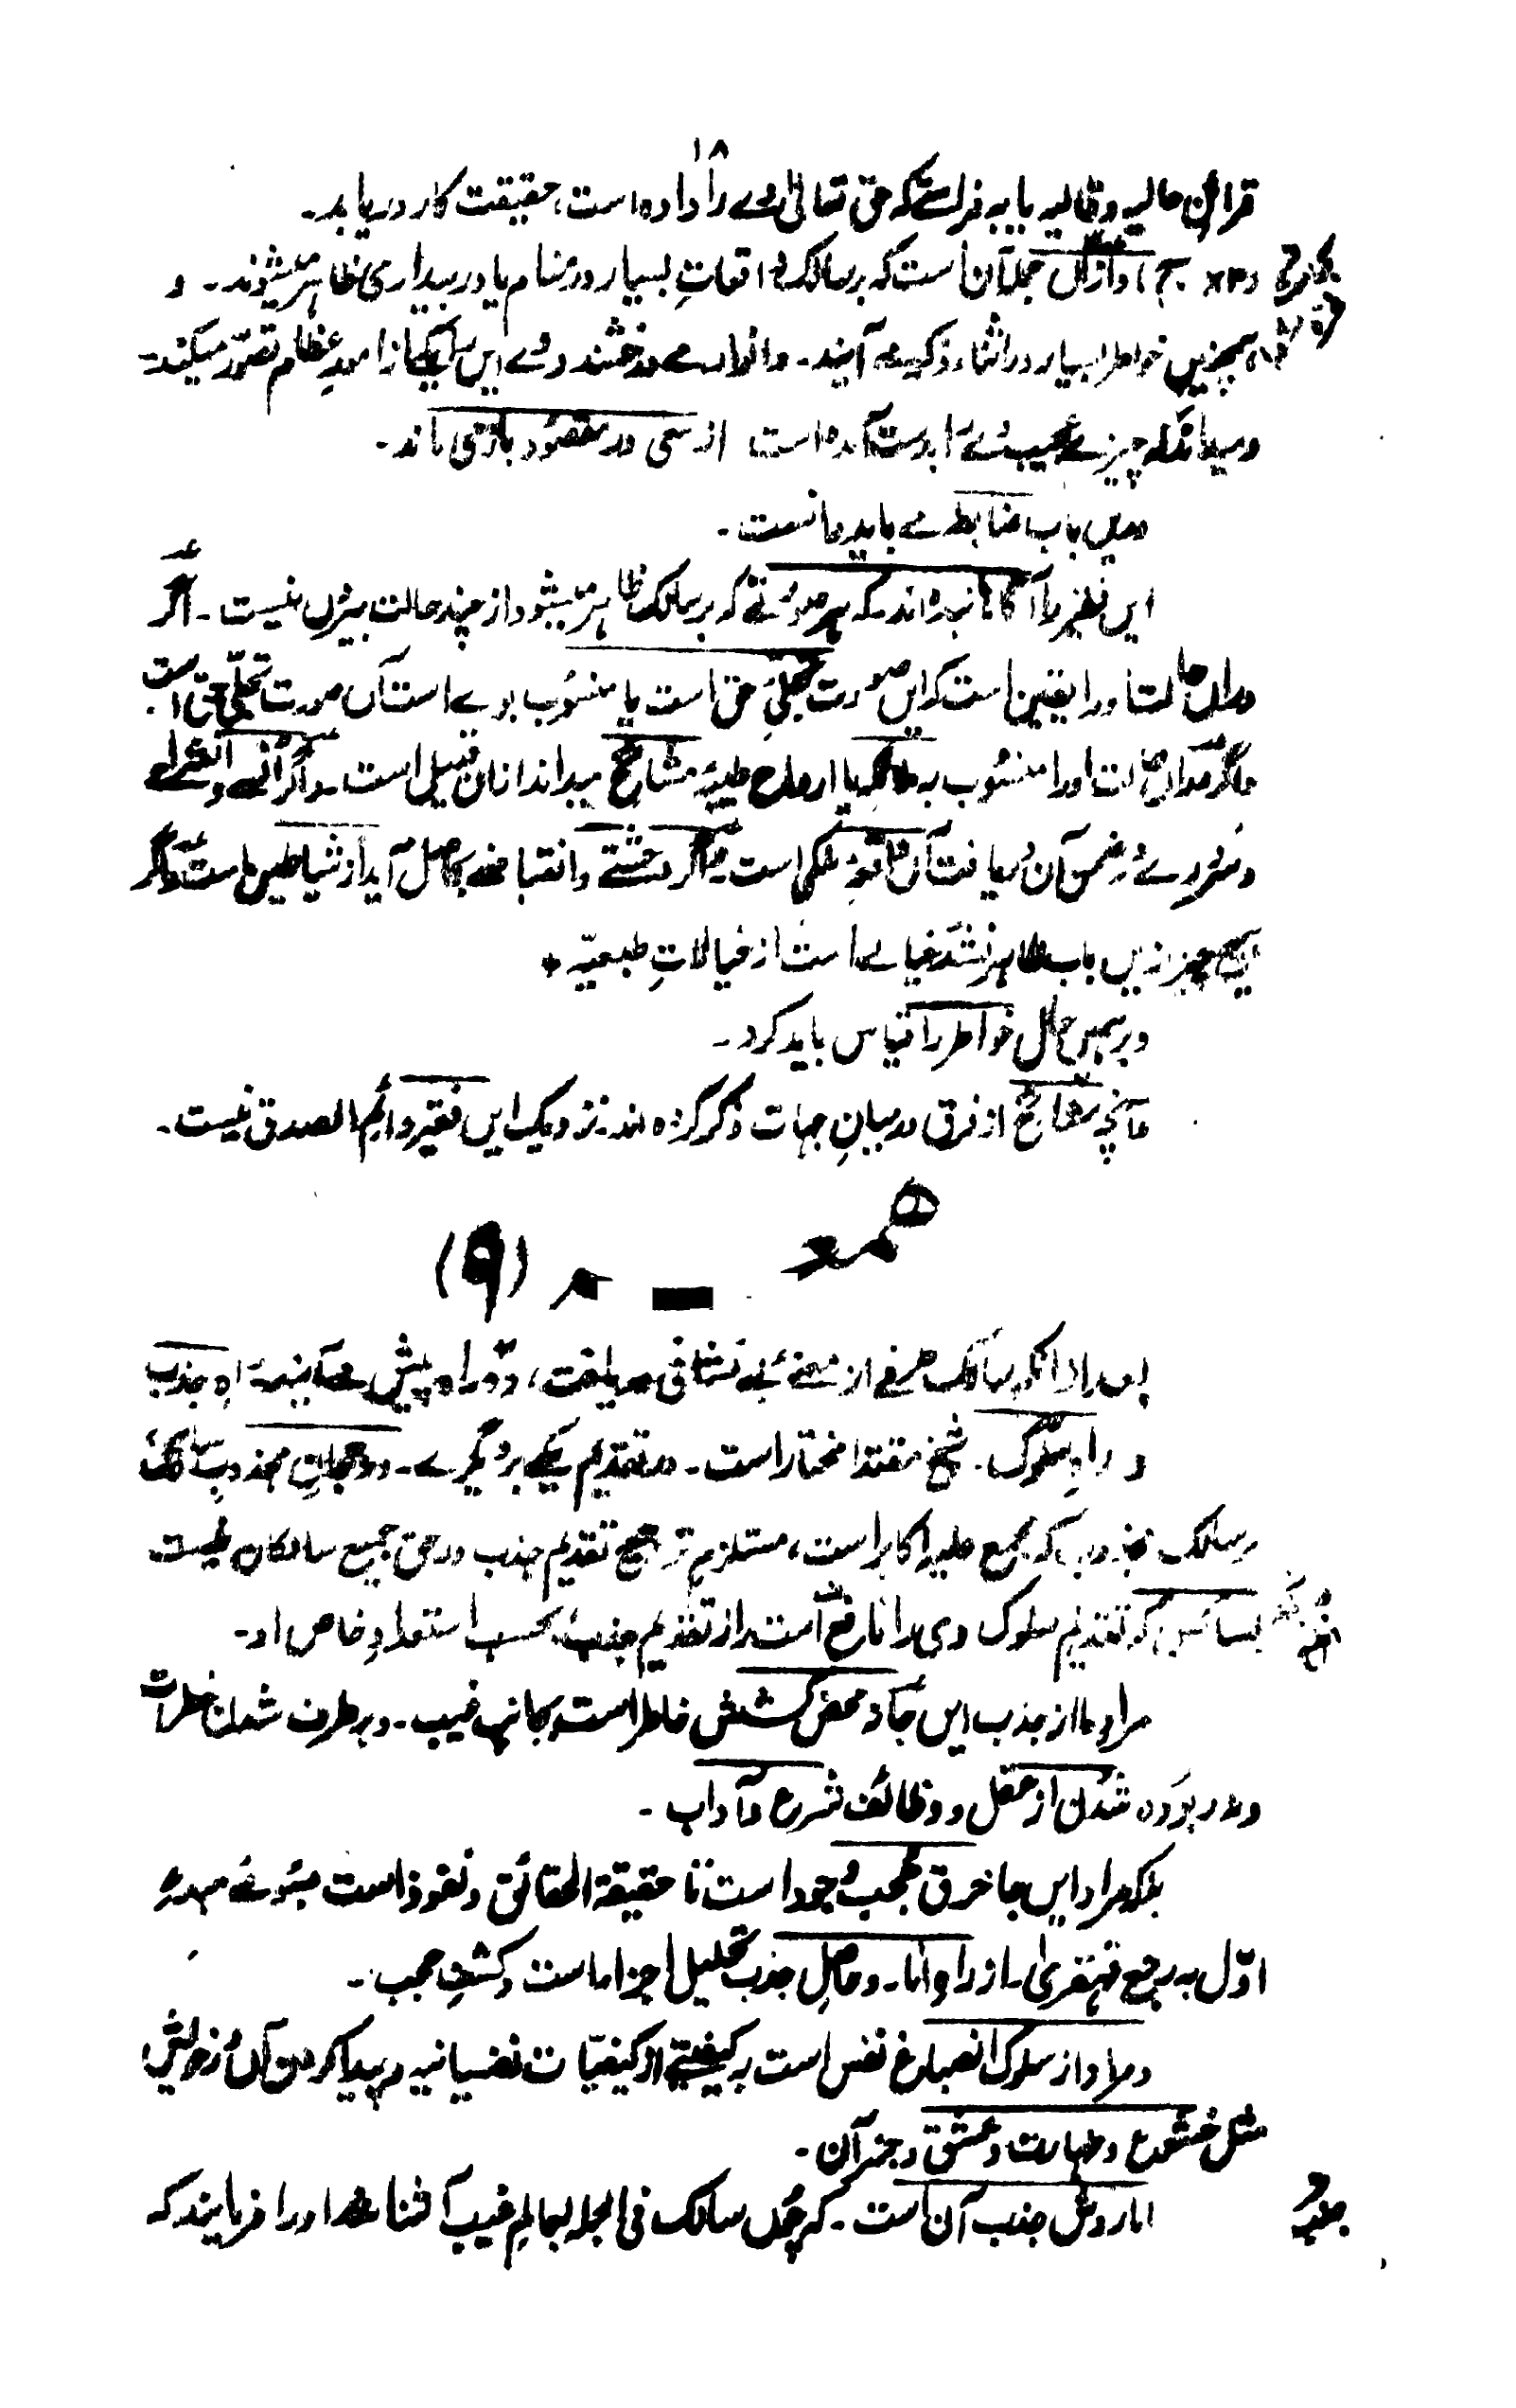 ۱۸
قرائن حالیه و قالیه یا به فراستے که حق تعالیٰ وے را داده است، حقیقت کار دریابد۔
وازاں جمله آن است که بر سالک واقعاتِ بسیار در منام یا در بیداری ظاهر میشوند۔ و
همچنیں خواطر بسیار در اثناء ذکر مے آیند۔ و انوار مے درخشند و وے ایں را یکے از امورِ عظام تصوّر میکند۔
و میداند که چیزے عجیب وے را بدست آمده است از سعی در مقصود باز می ماند۔
دریں باب ضابطه مے باید دانست۔
ایں فقیر را آگاهانیده اند۔ که هر صورتے که بر سالک ظاهر میشود از چند حالت بیروں نیست۔ اگر
دراں حالت او را یقین است که ایں صورت تجلّیِ حق است یا منسوب بوے است آں صورت تجلّی حق است
و اگر دراں حالت او را منسوب به ملائکه یا ارواح طیبۂ مشائخ میداند ازاں قبیل است۔ و اگر اُنسے و انشراحے
و سرورے در ضمن آن دریافت آں واقعۂ ملکی است۔ و اگر وحشتے و انقباضے حاصل آید از شیاطین است و اگر
هیچ چیز ازیں باب ظاهر نشد خیالے است از خیالاتِ طبعیّه +
و بر همیں حال خواطر را قیاس باید کرد۔
و آنچه مشائخ از فرق در میانِ جهات ذکر کرده اند۔ نزدیک ایں فقیر دائم الصدق نیست۔
همعـــه (۹)
بعد ازانکه سالک طرفے از معنے بے نشانی دریافت، دو راه پیش مے آیند۔ راهِ جذب
و راهِ سلوک۔ شیخ مقتدا مختار است۔ در تقدیم یکے بر دیگرے۔ و رجحانِ مجذوب سالک
بر سالک مجذوب که مجمع علیه اکابر است، مستلزم ترجیح تقدیم جذب در حق جمیع سالکان نیست
بسا کس که تقدیم سلوک وی را نافع است از تقدیم جذب بحسب استعدادِ خاص او۔
مراد ما از جذب ایں جا نه محض کشش خاطر است بجانب غیب۔ و بر طرف شدن خطرات
و در پرده شدن از عقل و وظائف شرع و آداب۔
بلکه مراد ایں جا خرق حجب وجود است تا حقیقة الحقائق و نفوذ است بسوئے مبدءِ
اوّل به رجع قهقری۔ از راهِ انا۔ و حاصلِ جذب تحلیل اجزاءاست و کشف حجب۔
و مراد از سلوک انصباغ نفس است به کیفیتے از کیفیّات نفسانیه و پیدا کردن آں در خویش
مثل خشوع و طهارت و عشق و جز آن۔
اما روش جذب آن است۔ که چوں سالک فی الجمله بعالمِ غیب آشنا شد او را فرمایند که
جذب